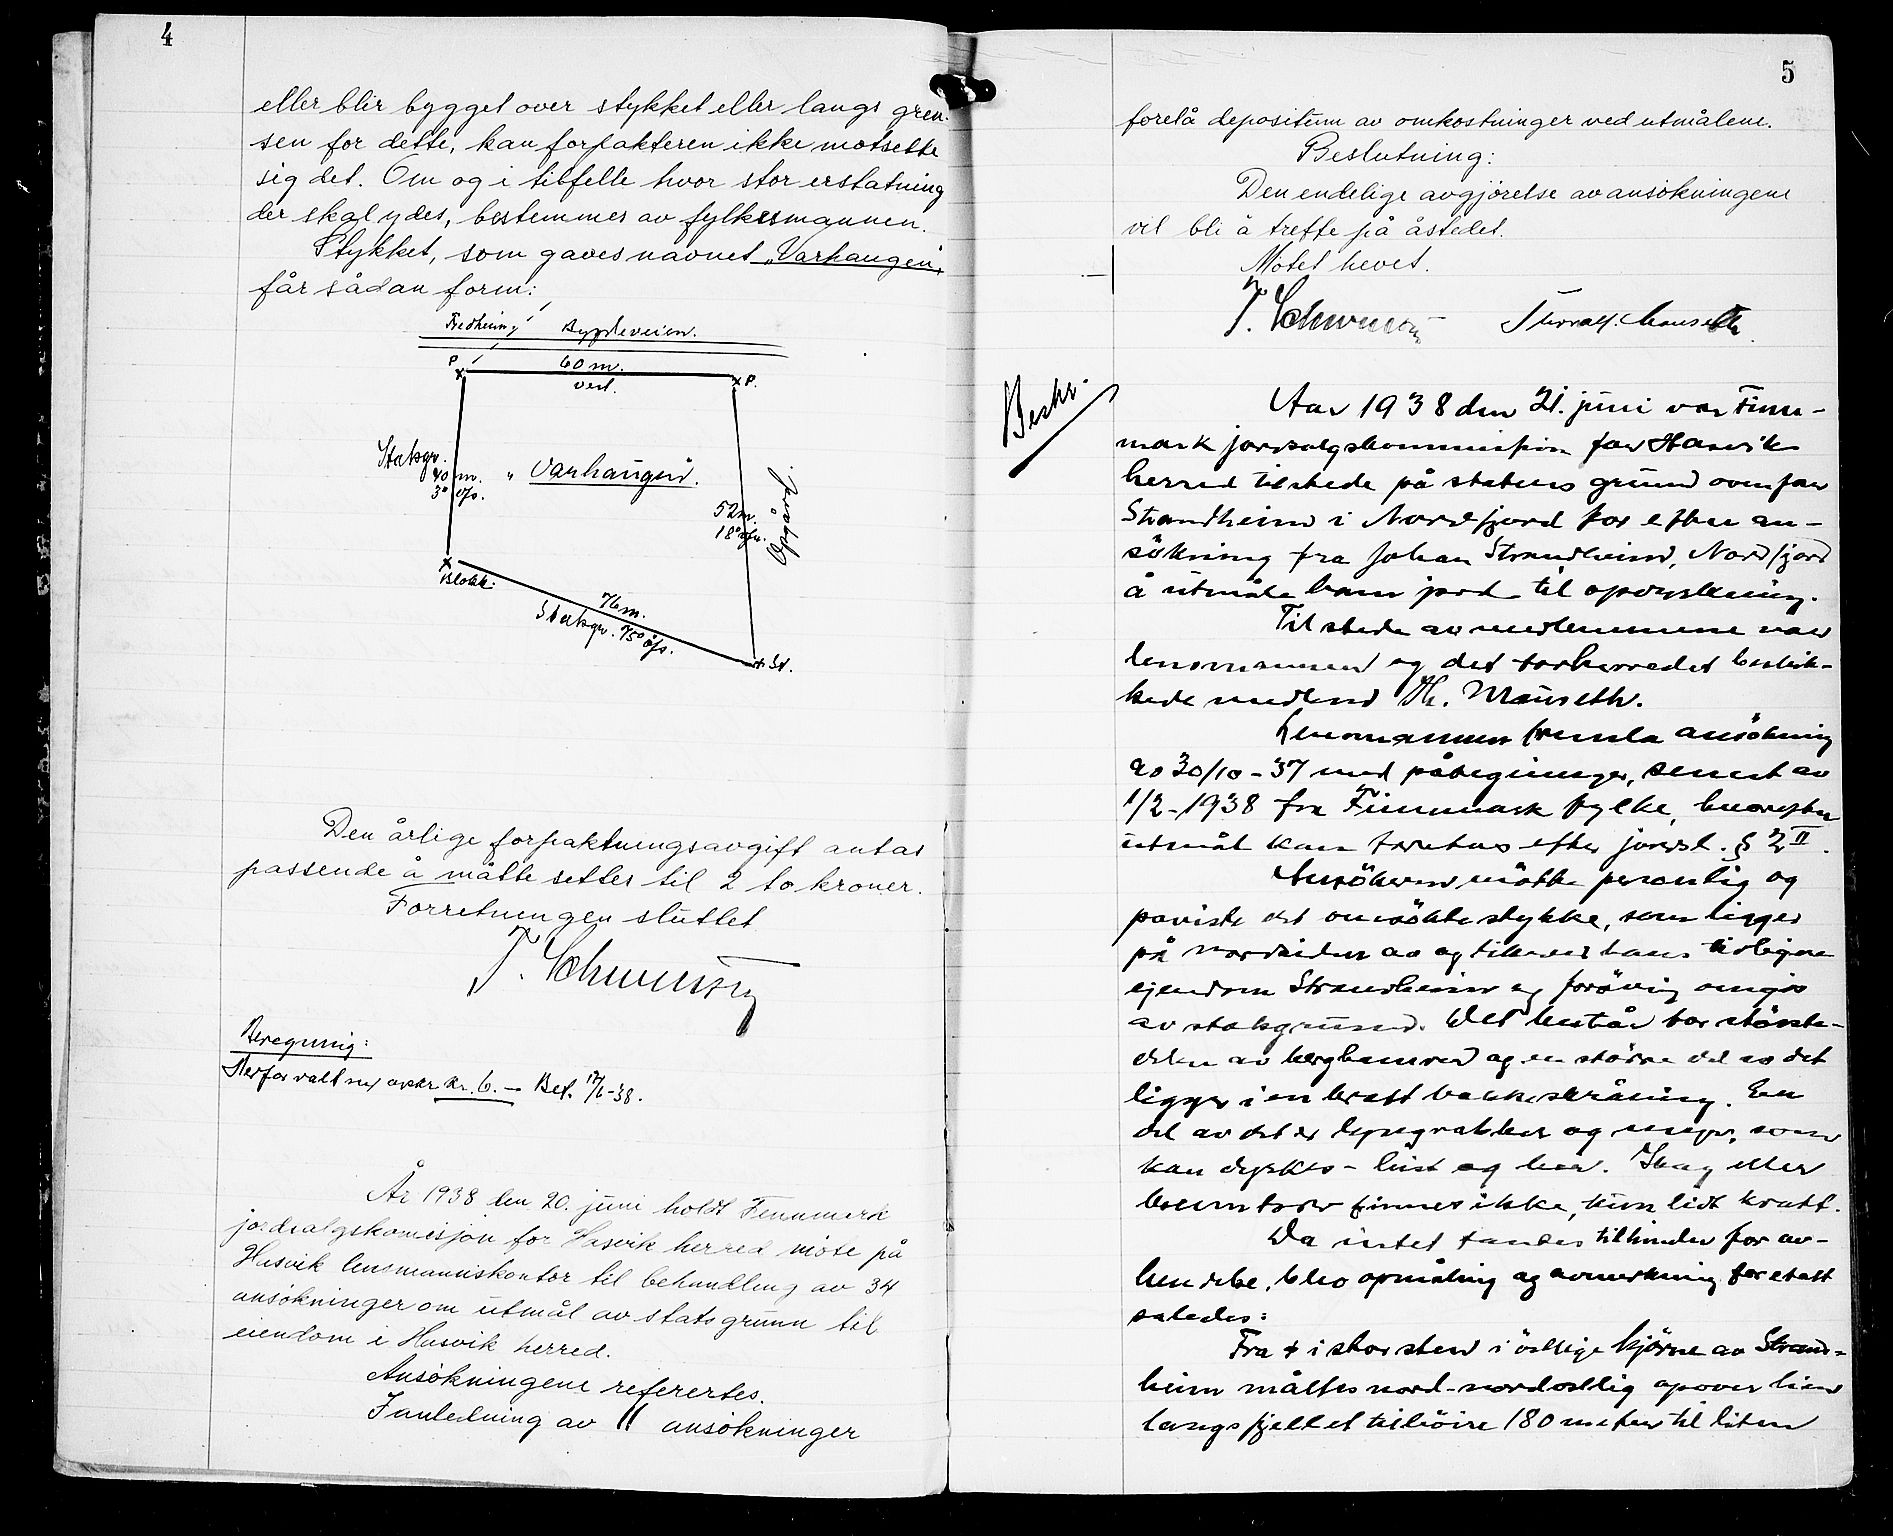 4
eller blir bygget over stykket eller langs gren-
sen for dette, kan forpakteren ikke motsette
sig det. Om og i tilfelle hvor stor erstatning
der skal ydes, bestemmes av fylkesmannen.
Stykket, som gaves navnet "Varhaugen",
får sådan form:
Fredheim Bygdeveien.
P 60 m. x P.
vest.
Statsgr.
40 m.
3° öfs.
"Varhaugen".
52 m.
18°
Opgård.
x
Blokk.
76 m.
Statsgr. 75° öfs.
+ St.
Den årlige forpaktningsavgift antas
passende å måtte settes til 2 to kroner.
Forretningen sluttet
Beregning:
kr. 6.- Bet. 17/6-38.
År 1938 den 20. juni holdt Finnmark
jordsalgskomisjon for Hasvik herred möte på
Hasvik lensmannskontor til behandling av 34
ansökninger om utmål av statsgrunn til
eiendom i Hasvik herred.
Ansökningene refereres.
I anledning av 11 ansökninger
5
forelå depositum av omkostninger ved utmålene.
Beslutning:
Den endelige avgjörelse av ansökningene
vil bli å treffe på åstedet.
Mötet hevet.
Thorvalf. Mauseth.
Beskr.
Aar 1938 den 21. juni var Finn-
mark jordsalgskommission for Hasvik
herred tilstede på statens grund ovenfor
Strandheim i Nordfjord for efter an-
sökning fra Johan Strandheim, Nordfjord
å utmåle ham jord til opdyrkning.
Tilstede av medlemmene var
lensmannen og det for herredet beskik-
kede medlem Th. Mauseth.
Lensmannen fremla ansökning
av 30/10-37 med påtegninger, senest av
1/2-1938 fra Finnmark fylke, hvorefter
utmål kan foretas efter jordsl. § 2 II.
Ansökeren mötte personlig og
paviste det omsökte stykke, som ligger
på nordsiden av og til hans tidligere
ejendom Strandheim og forövrig omgis
av statsgrund. Det består for störste-
delen av berghamrer og en större del av det
ligger i en bratt bakkeskråning. En
del av det er og myr, som
kan dyrkes - hist og her. Skog eller
finnes ikke, kun lidt kratt.
Da intet fandtes til hinder for av-
hendelse, blev opmåling og avmerkning foretatt
saledes:
Fra + i stor sten i östlige hjörne av Strand-
heim måltes nord-nordostlig opover lien
langs fjellet tilhöire 180 meter til liten